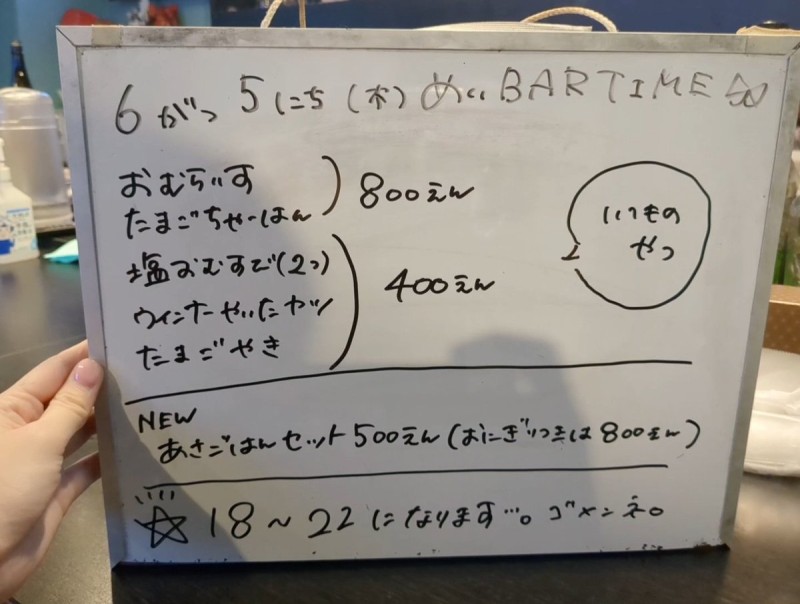 6がつ5にち(木)めいBARTIME
おむらいす
たまごちゃーはん
800えん
塩おむすび(2つ)
ウィンナーやいたヤツ
たまごやき
400えん
いつもの
やつ
NEW
あさごはんセット500えん(おにぎりつきは800えん)
☆18~22になります…。ゴメンネ。